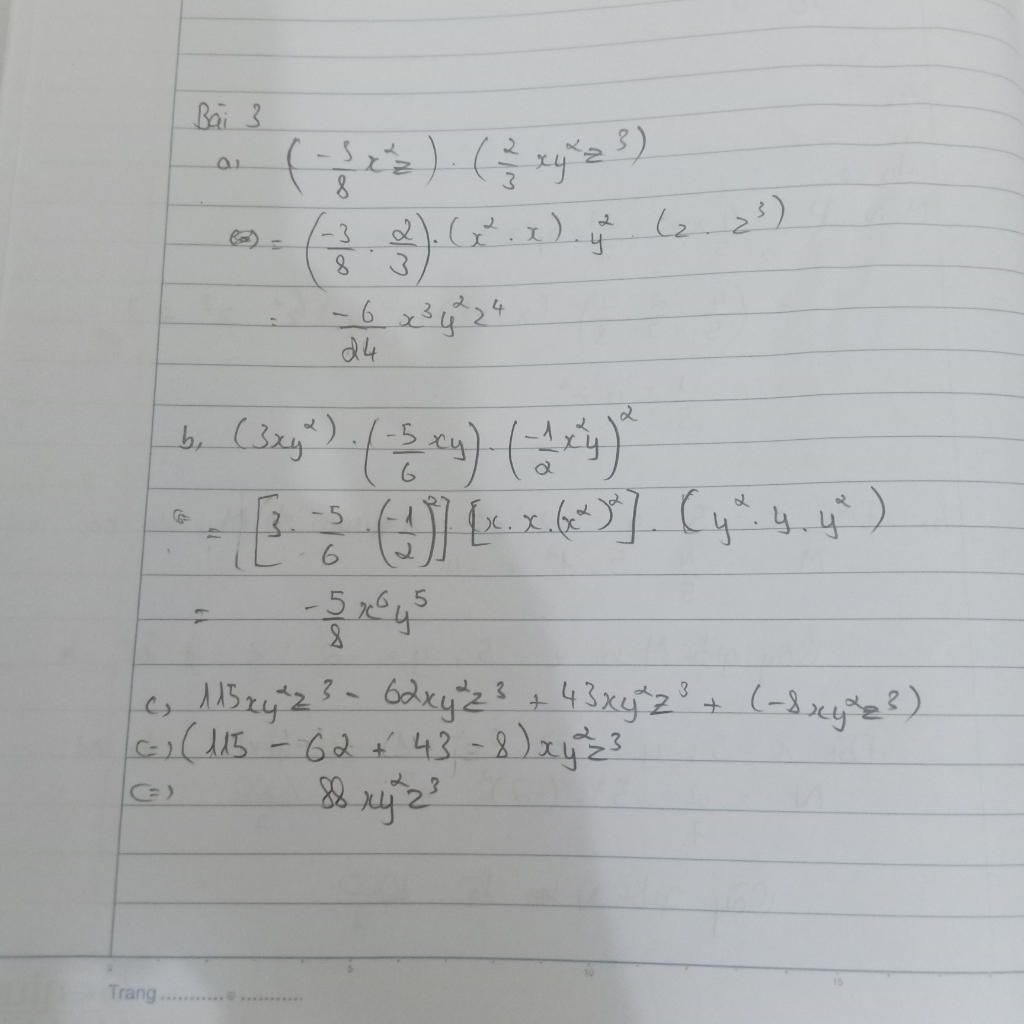 Bài 3
a, (-3/8 x²z) . (2/3 xy²z³)
= (-3/8 . 2/3) . (x² . x) . y² . (z . z³)
= -6/24 x³y²z⁴
b, (3xy²) . (-5/6 xy) . (-1/2 x²y)²
= [3 . -5/6 . (-1/2)²] . [x . x . (x²)²] . (y² . y . y²)
= -5/8 x⁶y⁵
c, 115xy²z³ - 62xy²z³ + 43xy²z³ + (-8xy²z³)
<=> (115 - 62 + 43 - 8) xy²z³
<=> 88 xy²z³
5 10 15
Trang